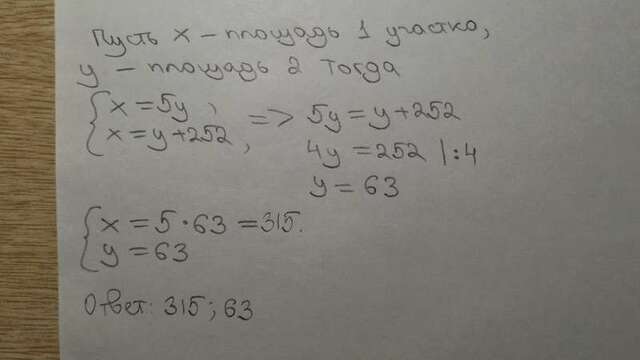 Пусть x – площадь 1 участка,
y – площадь 2 тогда
{ x = 5y , => 5y = y + 252
{ x = y + 252 , 4y = 252 | : 4
y = 63
{ x = 5 · 63 = 315.
{ y = 63
Ответ: 315 ; 63